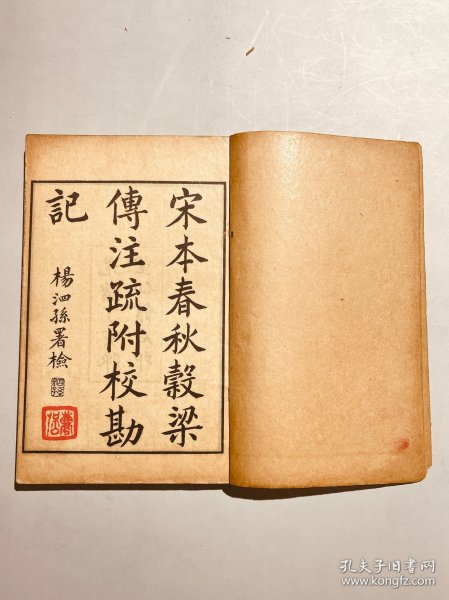 宋本春秋穀梁
傳注疏附校勘
記
楊泗孫署檢
孔夫子旧书网
www.kongfz.com